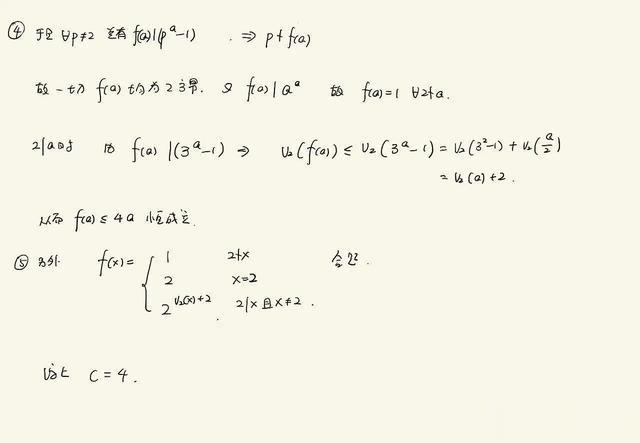 ④ 于是 ∀p≠2 总有 f(a)|(p^a-1) . ⇒ p∤f(a)
故一切 f(a) 均为2之幂. 又 f(a)|a^a 故 f(a)=1 ∀2∤a.
2|a时 由 f(a)|(3^a-1) ⇒ V₂(f(a)) ≤ V₂(3^a-1) = V₂(3²-1) + V₂(a/2)
= V₂(a)+2.
从而 f(a) ≤ 4a 恒成立.
⑤ 另外 f(x) = { 1 2∤x 合理.
2 x=2
2^{V₂(x)+2} 2|x 且 x≠2 .
综上 C=4.